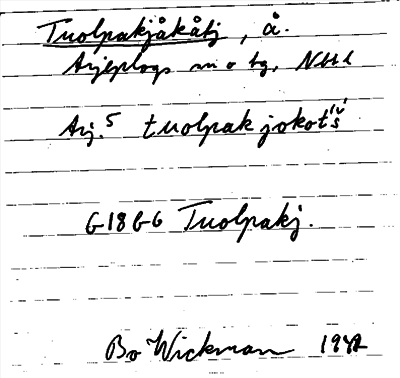 Tuolpakjåkåtj, å.
Arjeplogs sn o tg, Nbtl
Arj.5 tuolpakjokot́š́
G18G6 Tuolpakj.
Bo Wickman 1942